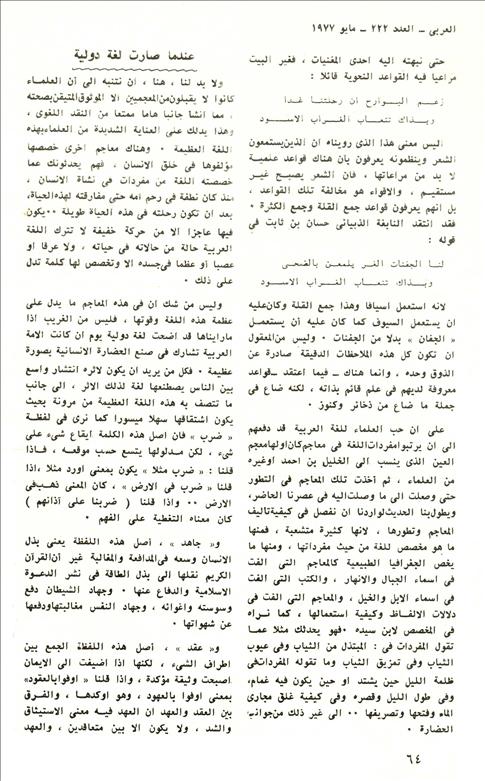 العربي - العدد ٢٢٢ - مايو ١٩٧٧
حتى نبهته اليه احدى المغنيات ، فغير البيت
مراعيا فيه القواعد النحوية قائلا :
زعم البوارح ان رحلتنا غدا
وبذاك تنعاب الغراب الاسود
اليس معنى هذا الذى رويناه ان الذين يستمعون
الشعر وينظمونه يعرفون بأن هناك قواعد علمية
لا بد من مراعاتها ، فان الشعر يصبح غير
مستقيم ، والاقواء هو مخالفة تلك القواعد ،
بل انهم يعرفون قواعد جمع القلة وجمع الكثرة •
فقد انتقد النابغة الذبيانى حسان بن ثابت في
قوله :
لنا الجفنات الغر يلمعن بالضحى
وبذاك تنعاب الغراب الاسود
لانه استعمل اسيافا وهذا جمع القلة وكان عليه
ان يستعمل السيوف كما كان عليه أن يستعمل
« الجفان » بدلا من الجفنات • وليس من المعقول
ان تكون كل هذه الملاحظات الدقيقة صادرة عن
الذوق وحده ، وانما هناك - فيما اعتقد - قواعد
معروفة لديهم في علم قائم بذاته ، لكنه ضاع في
جملة ما ضاع من ذخائر وكنوز •
على ان حب العلماء للغة العربية قد دفعهم
الى ان يرتبوا مفردات اللغة في معاجم كان اولها معجم
العين الذى ينسب الى الخليل بن احمد او غيره
من العلماء ، ثم أخذت تلك المعاجم في التطور
حتى وصلت الى ما وصلت اليه في عصرنا الحاضر،
ويطول بنا الحديث لو اردنا ان نفصل في كيفية تاليف
المعاجم وتطورها ، لانها كثيرة متشعبة ، فمنها
ما هو مخصص للغة من حيث مفرداتها ، ومنها ما
يخص الجغرافيا الطبيعية كالمعاجم التى الفت
في اسماء الجبال والانهار ، والكتب التى الفت
في اسماء الابل والخيل ، والمعاجم التى الفت في
دلالات الالفاظ وكيفية استعمالها ، كما نراه
في المخصص لابن سيده • فهو يحدثك مثلا عما
تقول المفردات في : المبتذل من الثياب وفى عيوب
الثياب وفى تمزيق الثياب وما تقوله المفردات فى
ظلمة الليل حين يشتد او حين يكون فيه غمام،
وفى طول الليل وقصره وفى كيفية غلق مجارى
الماء وفتحها وتصريفها •• الى غير ذلك من جوانب
الحضارة •
عندما صارت لغة دولية
ولا بد لنا ، هنا ، ان نتنبه الى أن العلماء
كانوا لا يقبلون من المعجميين الا الموثوق المتيقن بصحته
، مما انشأ جانبا هاما ممتعا من النقد اللغوى ،
وهذا يدلك على العناية الشديدة من العلماء بهذه
اللغة العظيمة • وهناك معاجم اخرى خصصها
مؤلفوها في خلق الانسان ، فهم يحدثونك عما
خصصته اللغة من مفردات في نشأة الانسان ،
منذ كان نطفة في رحم امه حتى مفارقته لهذه الحياة،
بعد ان تكون رحلته في هذه الحياة طويلة •• يكون
فيها عاجزا الا من حركة خفيفة لا تترك اللغة
العربية حالة من حالاته في حياته ، ولا عرقا او
عصبا أو عظما في جسده الا وتخصص لها كلمة تدل
على ذلك •
وليس من شك ان في هذه المعاجم ما يدل على
عظمة هذه اللغة وقوتها ، فليس من الغريب اذا
ما رايناها قد اضحت لغة دولية يوم ان كانت الامة
العربية تشارك في صنع الحضارة الانسانية بصورة
عظيمة • فكل من يريد ان يكون لاثره انتشار واسع
بين الناس يصطنعها لغة لذلك الاثر ، الى جانب
ما تتصف به هذه اللغة العظيمة من مرونة بحيث
يكون اشتقاقها سهلا ميسورا كما نرى في لفظة
« ضرب » فان اصل هذه الكلمة ايقاع شىء على
شىء ، لكن مدلولها يتسع حسب موقعه ، فاذا
قلنا : « ضرب مثلا » يكون بمعنى اورد مثلا ، اذا
قلنا « ضرب في الارض » ، كان المعنى ذهب فى
الارض •• واذا قلنا ( ضربنا على آذانهم )
كان معناه التغطية على الفهم •
و« جاهد » ، أصل هذه اللفظة يعنى بذل
الانسان وسعه فى المدافعة والمغالبة غير أن القرآن
الكريم نقلها الى بذل الطاقة في نشر الدعوة
الاسلامية والدفاع عنها • وجهاد الشيطان دفع
وسوسته واغوائه ، وجهاد النفس مغالبتها ودفعها
عن شهواتها •
و« عقد » ، أصل هذه اللفظة الجمع بين
اطراف الشىء ، لكنها اذا اضيفت الى الايمان
اصبحت وثيقة مؤكدة ، واذا قلنا « اوفوا بالعقود»
بمعنى اوفوا بالعهود ، وهو اوكدها ، والفرق
بين العقد والعهد ان العهد فيه معنى الاستيثاق
والشد ، ولا يكون الا بين متعاقدين ، والعهد
٦٤